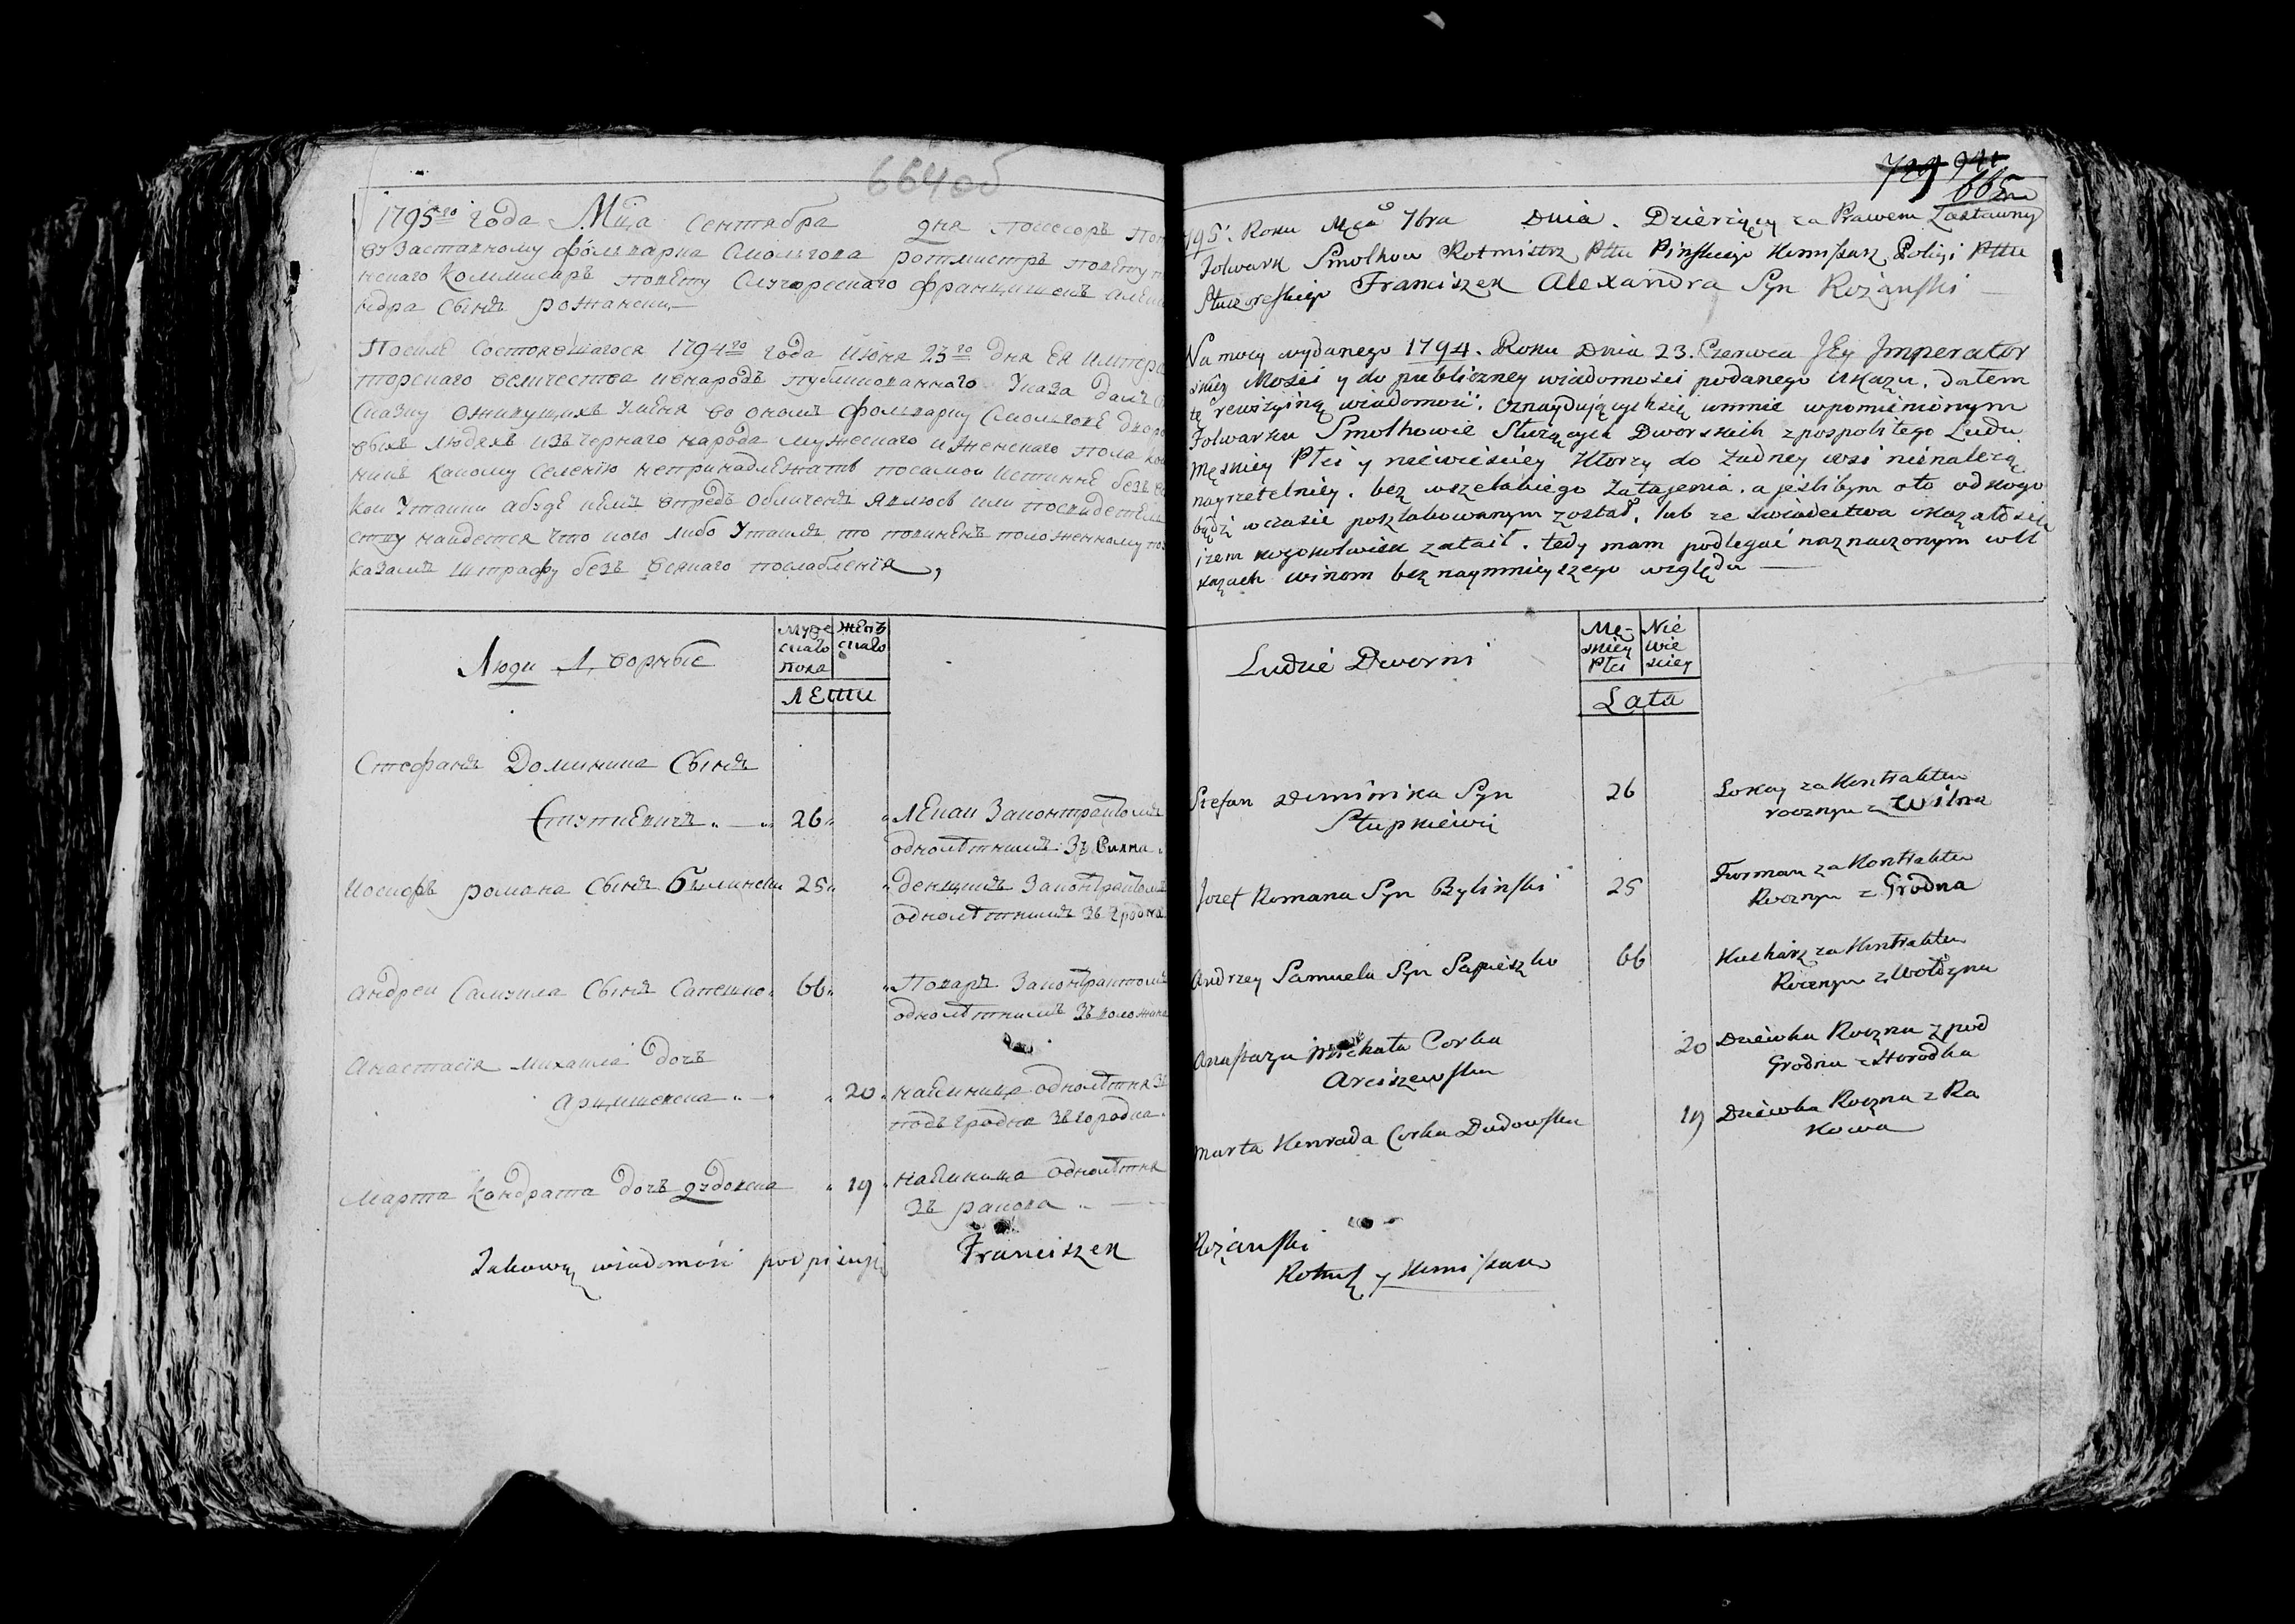 664об
1795го года Мца Сентября дня Посесоръ
въ Заставному фольварка Смолькова ротмистръ повѣту
нского Коммисаръ повѣту Случорескаго Францишекъ Алек
ндра Сынъ рожански
После Состоявшагося 1794го года Июня 23го дня Ея Импера
торскаго величества и в народъ публикованнаго Указа далъ
Сказку оживущихъ Уменя во оном фольварку Смолькове дворо
выхъ людяхъ изъ чернаго народа мужескаго и женскаго пола
никъ какому селению непринадлежатъ посамои Истинне безъ
кои Утаики абуде кемъ впредь обличенъ явлюсь или посвидетель
ству найдется что кого либо Утаилъ то повиненъ положенному по
казамъ штрафу безъ всякаго послабления
Люди Дворные
муже
скаго
пола
женъ
скаго
лети
Стефанъ Доминика Сынъ
Ступкевичъ 26 лекаи Законтрактомъ
однолетнимъ Зъ вилна
Иосифъ романа Сынъ Былински 25 денщикъ Законтрактомъ
однолетнимъ Зъ Гродна
андреи Самуила Сынъ Сапешко 66 Поваръ Законтрактомъ
однолетнимъ Зъ воложина
Анастасия михаила дочъ
арцишевска 20 наемница однолетня Зъ
подъ гродна Зъ городка
Марта Кондрата дочъ дудовска 19 наемница однолетня
Зъ ракова
Takową wiadomość podpisuję Franciszek
729 665
795. Roku Mca 7bra Dnia. Dzierżący za Prawem Zastawny
Folwark Smolkow Rotmistrz Pttu Pińskiego Komissarz Policyi Pttu
Słuczoreskiego Franciszek Alexandra Syn Rożański
Na mocy wydanego 1794. Roku Dnia 23. Czerwca JEy Imperator
skiey Mości y do publiczney wiadomości podanego Ukazu. dałem
tę rewizyiną wiadomość. oznaydujących się umnie wpomienionym
Folwarku Smolkowie Służących Dworskich z pospolitego Ludu
męskiey Płci y niewieściey Którzy do żadney wsi nienależą
nayrzetelniey. bez wszelakiego Zatajenia. a jeślibym oto od kogo
bądź wczasie poszlakowanym został, lub ze świadectwa okazało się
iżem kogokolwiek zataił. tedy mam podlegać naznaczonym w U
kazach winom bez naymnieyszego względu
Ludzie Dworni
Mę-
skiey
Płci
Nie
wie
sciey
Lata
Stefan Dominika Syn 26 Lokay za Kontraktem
Stupkiewicz rocznym z Wilna
Jozef Romana Syn Bylinski 25 Furman za Kontraktem
Rocznym z Grodna
Andrzey Samuela Syn Sapieszko 66 Kucharz za Kontraktem
Rocznym z Wołożyna
Anastazya Michała Corka 20 Dziewka Roczna z pod
Arciszewska Grodna z Horodka
Marta Konrada Corka Dudowska 19 Dziewka Roczna z Ra
kowa
Rożański
Rotmis y Komissarz